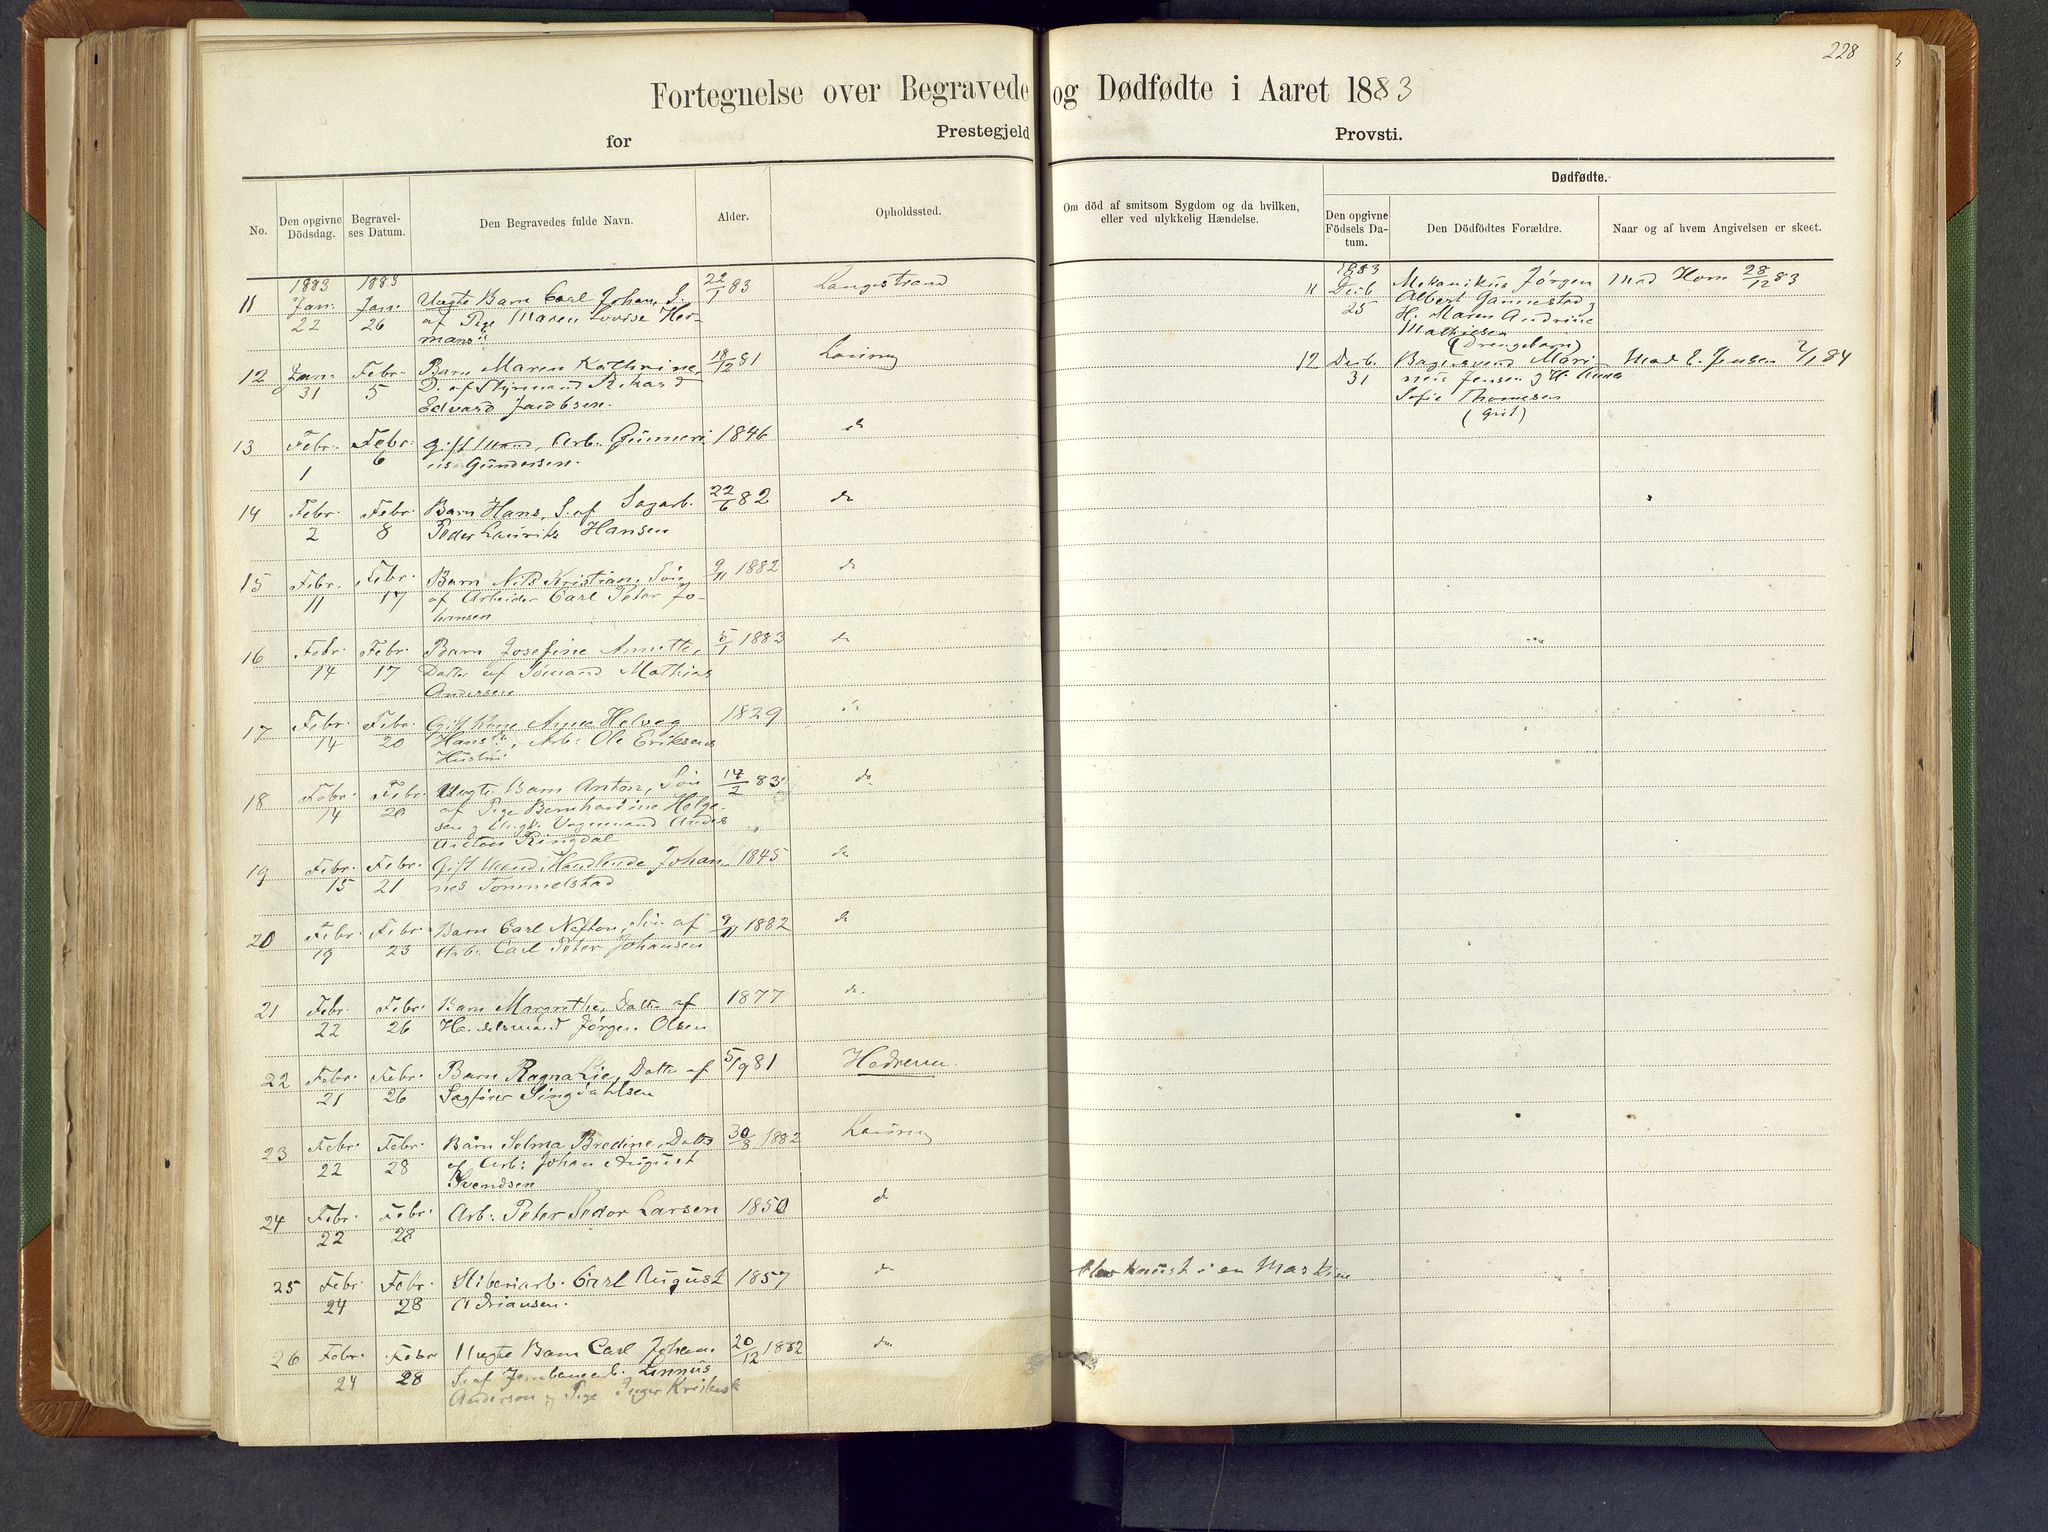 228
Fortegnelse over Begravede og Dødfødte i Aaret 1883
for Prestegjeld Provsti.
No.
Den opgivne Dödsdag.
Begravelses Datum.
Den Begravedes fulde Navn.
Alder.
Opholdssted.
Om död af smitsom Sygdom og da hvilken, eller ved ulykkelig Hændelse.
Dødfødte.
Den opgivne Födsels Datum.
Den Dödfödtes Forældre.
Naar og af hvem Angivelsen er skeet.
1883 1883
11 Jan. 22 Jan 26 Uægte Barn Carl Johan, S. 22/1 83 Langestrand
af Pige Maren Lovise Her-
mans
12 Jan. 31 Febr. 5 Barn Maren Kathrine, 18/12 81 Laurvig
D. af Styrmand Rikard
Edvard Jacobsen.
13 Febr. 1 Febr. 6 Gift Mand, Arb. Gunneri 1846 do
us Gundersen.
14 Febr. 2 Febr. 8 Barn Hans, S. af Sagarb. 22/6 82 do
Peder Lauritz Hansen
15 Febr. 11 Febr. 17 Barn Nils Kristian, Søn 9/11 1882 do
af Arbeider Carl Peter Jo-
hansen
16 Febr. 14 Febr. 17 Barn Josefine Annette, 5/1 1883 do
Datter af Sömand Mathias
Andersen
17 Febr. 14 Febr. 20 Gift Kone Anne Helveg 1829
Hansdr, Arb: Ole Eriksens
Hustru
18 Febr. 14 Febr. 20 Uægte Barn Anton, Søn 14/2 83 do
af Pige Bernhardine Helge-
sen og Ungk. Vognmand Anders
Anton Ringdal
19 Febr. 15 Febr. 21 Gift Mand, Handlende Johan- 1845 do
nes Tommelstad
20 Febr. 19 Febr. 23 Barn Carl Nefton, Søn af 9/11 1882 do
Arb: Carl Peter Johansen
21 Febr. 22 Febr. 26 Barn Margrethe, Datter af 1877 do
Handelsmand Jörgen Olsen
22 Febr. 21 Febr. 26 Barn Ragna Lie, Datter af 5/9 81 Hedrum
Sagförer Singdahlsen
23 Febr. 22 Febr. 28 Barn Selma Bredine, Datter 30/8 1882 Laurvig
af Arb: Johan August
Svendsen
24 Febr. 22 Febr. 28 Arb: Peter Sedor Larsen 1850 do
25 Febr. 24 Febr. 28 Sliberiarb. Carl August 1857 do Blev knust i en Maskine
Adriansen.
26 Febr. 24 Febr. 28 Uægte Barn Carl Johan 20/12 1882 do
S. af Jernbanearb. Linnus
Anderson og Pige Inger
1883
11 Decb. 25 Mekanikus Jørgen Mad Horn 28/12 83
Albert Gannestad og
H. Maren Andrine
Mathiesen
(Drengebarn)
12 Decb. 31 Bagersvend Mari- Mad E. Jensen 2/1 84
nius Jensen og H. Anna
Sofie Thomesen